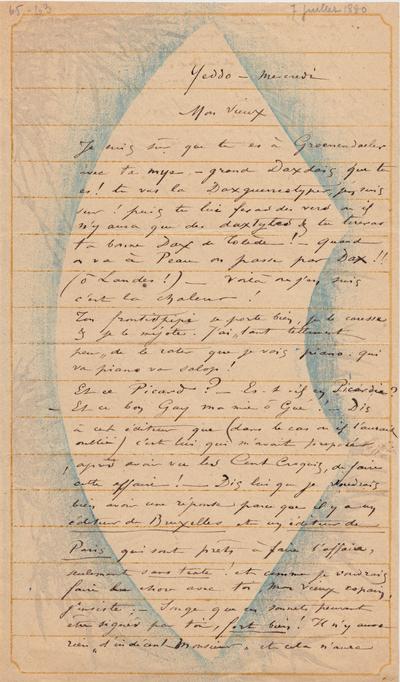 65-43
7 juillet 1880
Yeddo - mercredi
Mon Vieux
Je suis sûr que tu es à Groenendaeler
avec ta mye - grand Daxdais que tu
es! tu vas la Daxguerreotyper, j'en suis
sur! puis tu lui feras des vers où il
n'y aura que des daxtyles & tu tireras
ta bonne Dax de Tolede! - quand
on va à Peau on passe par Dax!!
(ô Landes!) - Voilà où j'en suis
c'est la chaleur!
Ton frontispipe se porte bien, je le caresse
& je le mijote. J'ai tant tellement
peur de le rater que je vois piano. qui
va piano va salop!
Et ce Picard? - Es-t-il en Picardie?
- Et ce bon Gay ma mie ô Gué! - Dis
à cet éditeur que (dans le cas où il l'aurait
oublié) c'est lui, qui m'avait proposé
après avoir vu les Cent Croquis, de faire
cette affaire! - Dis lui que je voudrais
bien avoir une réponse parce que il y a un
éditeur de Bruxelles et un éditeur de
Paris qui sont prêts à faire l'affaire,
seulement sans texte! et comme je voudrais
faire la chose avec toi mon vieux copain,
j'insiste; - Songe que ces sonnets peuvent
être signés par toi, fort bien! Il n'y aura
rien "d'indécent Monsieur" et cela n'aura